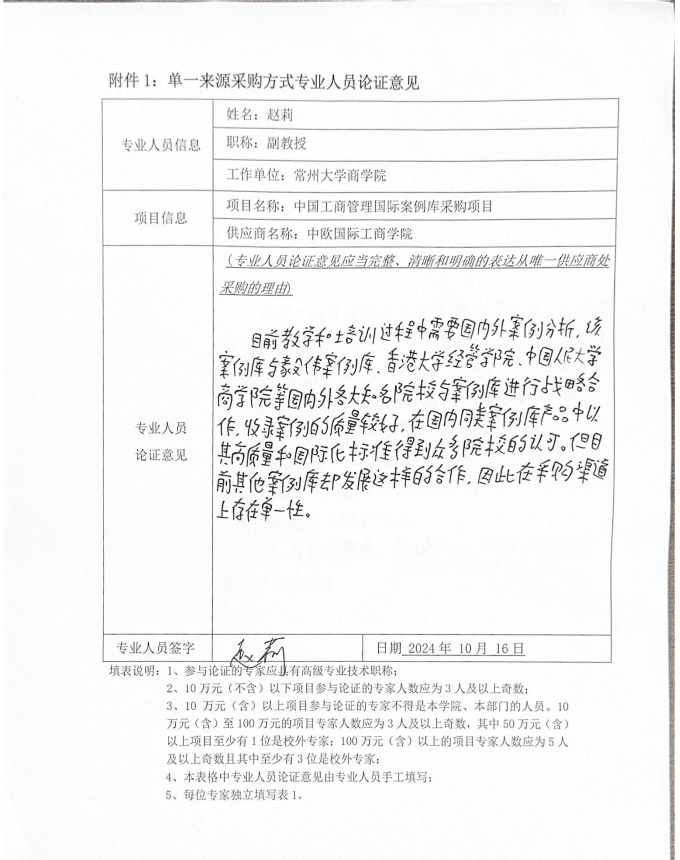 附件 1：单一来源采购方式专业人员论证意见
专业人员信息
姓名：赵莉
职称：副教授
工作单位：常州大学商学院
项目信息
项目名称：中国工商管理国际案例库采购项目
供应商名称：中欧国际工商学院
专业人员
论证意见
（专业人员论证意见应当完整、清晰和明确的表达从唯一供应商处
采购的理由）
目前教学和培训过程中需要国内外案例分析，该
案例库与毅伟案例库、香港大学经管学院、中国人民大学
商学院等国内外各大知名院校与案例库进行战略合
作，收录案例的质量较好，在国内同类案例库产品中以
其高质量和国际化标准得到众多院校的认可。但目
前其他案例库却发展这样的合作，因此在采购渠道
上存在单一性。
专业人员签字
赵莉
日期 2024 年 10 月 16 日
填表说明：1、参与论证的专家应具有高级专业技术职称；
2、10 万元（不含）以下项目参与论证的专家人数应为 3 人及以上奇数；
3、10 万元（含）以上项目参与论证的专家不得是本学院、本部门的人员。10
万元（含）至 100 万元的项目专家人数应为 3 人及以上奇数，其中 50 万元（含）
以上项目至少有 1 位是校外专家；100 万元（含）以上的项目专家人数应为 5 人
及以上奇数且其中至少有 3 位是校外专家；
4、本表格中专业人员论证意见由专业人员手工填写；
5、每位专家独立填写表 1。